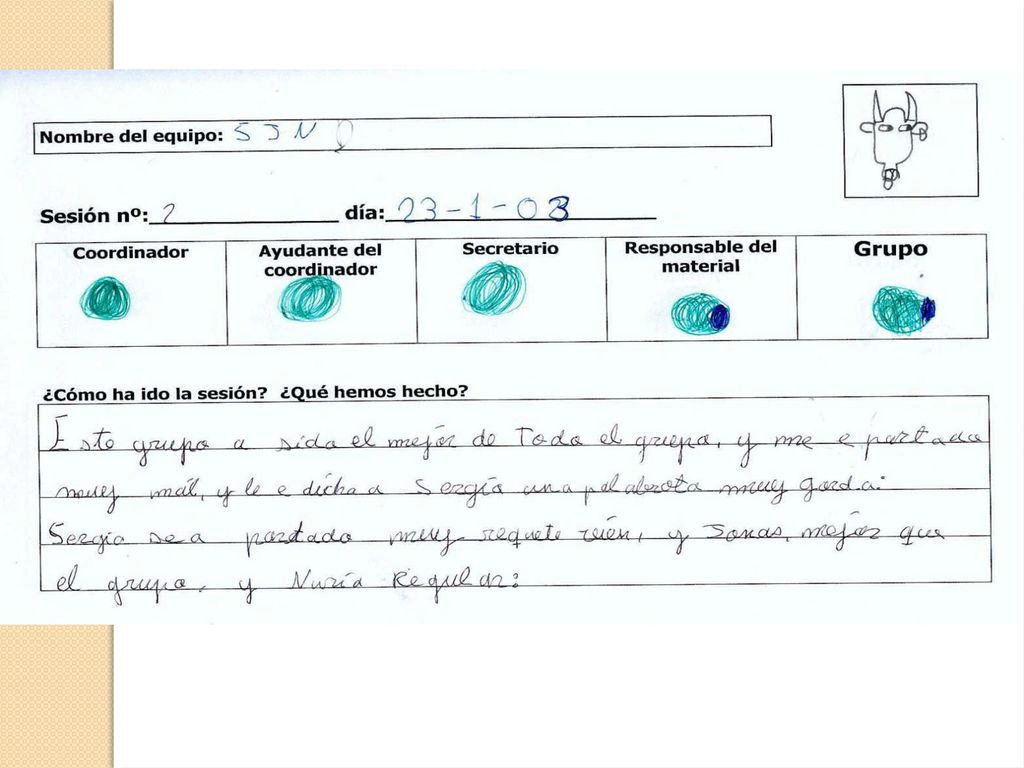 Nombre del equipo: S J N
Sesión nº: 2 día: 23-1-03
Coordinador
Ayudante del
coordinador
Secretario
Responsable del
material
Grupo
¿Cómo ha ido la sesión? ¿Qué hemos hecho?
Este grupo a sido el mejór de Todo el grupo, y me e portado
muy mál, y le e dicho a Sergio una palabrota muy gorda:
Sergio se a portado muy requete vién, y Jonas, mejór que
el grupo, y Nuria Regular: